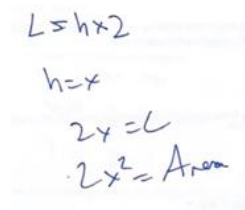 L = h × 2
h = x
2x = L
2x² = Area